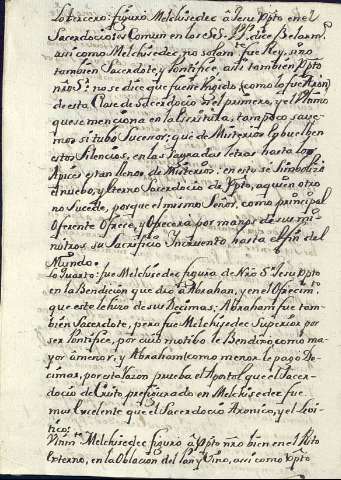 Lo tercero: figuró Melchisedec à Jesu Xpto en el
Sacerdocio: es Comun en los SS. PP. dice Belarmo
asi como Melchisedec no solamte fue Rey, sino
tambien Sacerdote, y Pontifice, asi tambien Xpto
nro Sr: no se dice que fuese Ungido (como lo fue Aron)
de esta Clase de Sacerdocio ni el primero, y el Ultimo
que se menciona en la Escritura, tampoco save-
mos si tubo Sucesor; que de Misterios Embuelben
estos Silencios, en las Sagradas letras hasta los
Apices estan llenos de Misterios: en esto se simbolizó
el nuebo, y eterno Sacerdocio de Xpto, a quien otro
no Sucede, porque el mismo Señor, como principal
Oferente Ofrece, y Ofrecerá por manos de sus mi-
nistros su Sacrificio Incruento hasta el fin del
Mundo.
Lo Quarto: fue Melchisedec figura de Nro Sr Jesu Xpto
en la Bendicion que dio à Abrahan, y en el Ofrecimto
que este le hizo de sus Decimas: Abraham fue tam-
bien Sacerdote, pero fue Melchysedec Superior por
ser Pontifice, por cuio motibo le Bendixo como ma-
yor à menor, y Abraham como menor le pagó De-
cimas, por esta razon prueba el Apostol que el Sacer-
docio de Cristo, prefigurado en Melchisedec fue
mas Excelente que el Sacerdocio Aronico, y el Leví-
tico;
Ultimte Melchisedec figuró a Xpto nro bien en el Rito
Externo, en la Oblacion del Pan y Vino, asi como Xpto